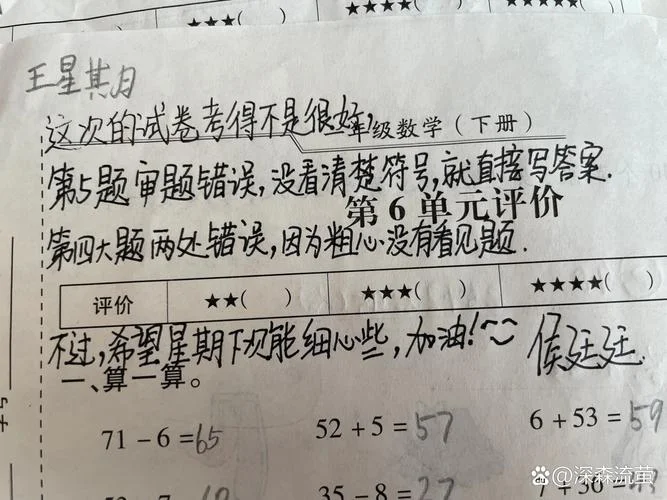 ★★★( ) ★★★★( ) ★★★★★(
王星其月
这次的试卷考得不是很好,
年级数学(下册)
第5题审题错误,没看清楚符号,就直接写答案.
第6单元评价
第四大题两处错误,因为粗心没有看见题.
评价 ★★( ) ★★★( ) ★★★★( )
不过,希望星期下次能细心些,加油!~ 侯廷廷
一、算一算。
71-6=65 52+5=57 6+53=59
35-8=27 +30=
@深森流萤